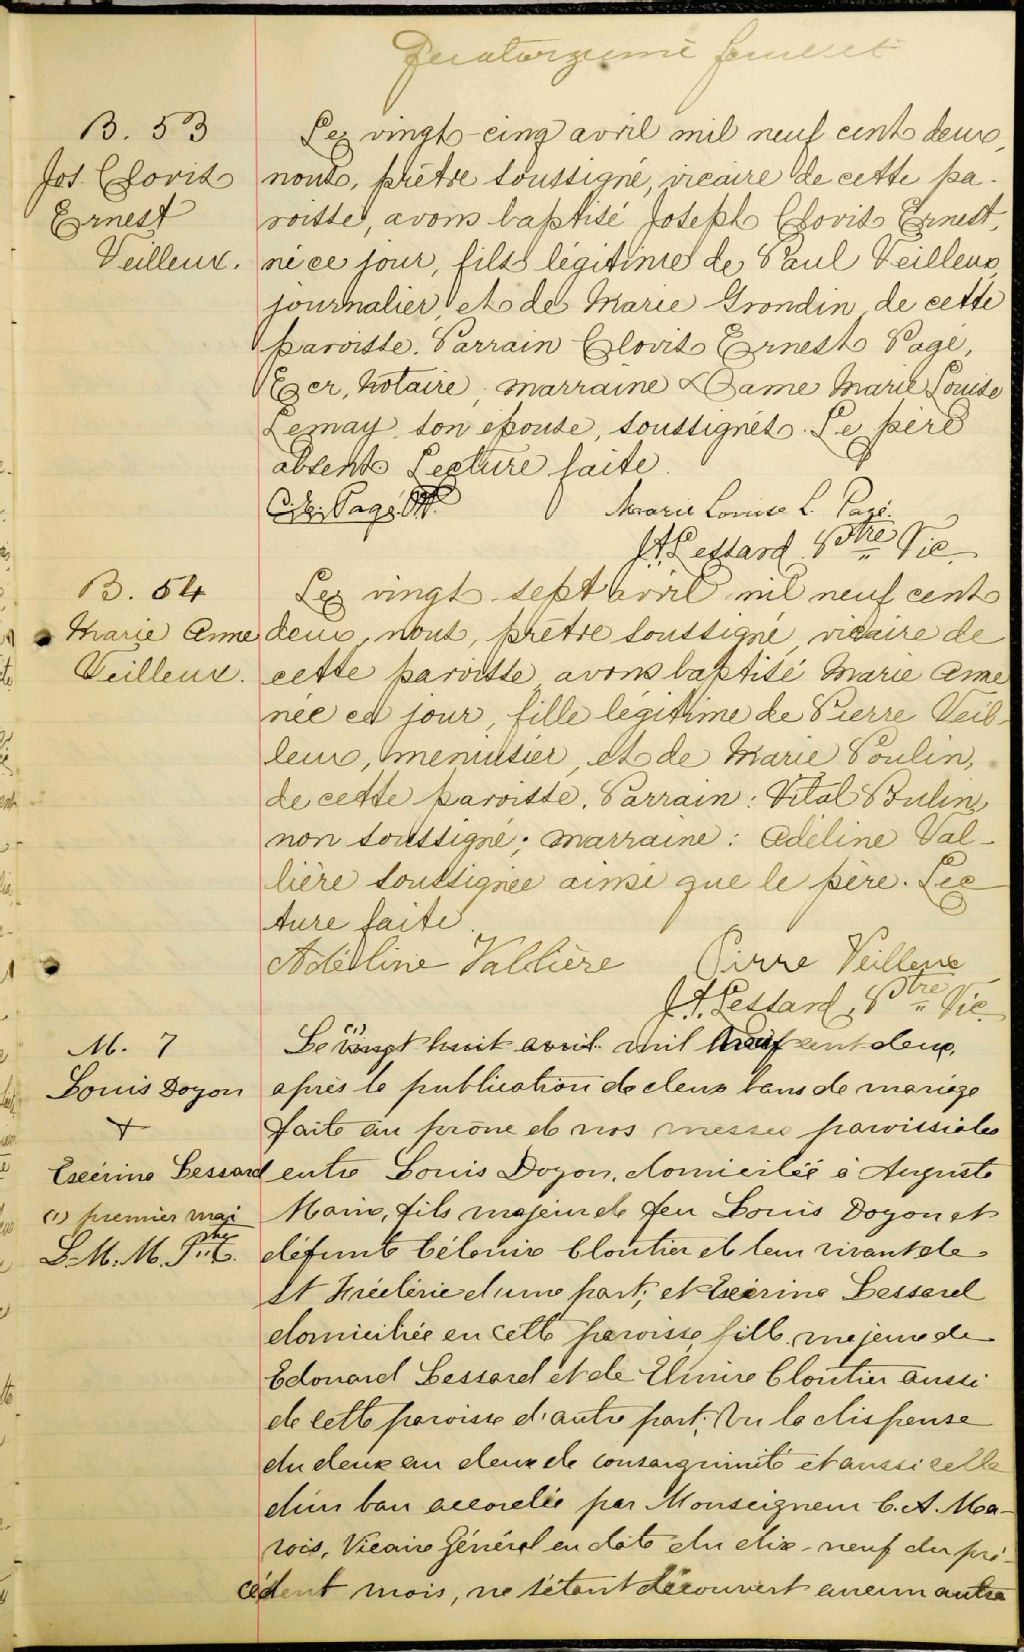 Quatorzième feuillet
B. 53
Jos. Clovis
Ernest
Veilleux.
Le vingt-cinq avril mil neuf cent deux,
nous, prêtre soussigné, vicaire de cette pa-
roisse, avons baptisé Joseph Clovis Ernest,
né ce jour, fils légitime de Paul Veilleux,
journalier, et de Marie Grondin de cette
paroisse. Parrain Clovis Ernest Pagé,
Ecr, Notaire, marraine Dame Marie Louise
Lemay, son épouse, soussignés. Le père
absent. Lecture faite.
C. E. Pagé. N.P.
Marie Louise L. Pagé.
J.A. Lessard Ptre Vic.
B. 54
Marie Anne
Veilleux.
Le vingt sept avril mil neuf cent
deux, nous, prêtre soussigné, vicaire de
cette paroisse, avons baptisé Marie Anne
née ce jour, fille légitime de Pierre Veil-
leux, menuisier, et de Marie Poulin,
de cette paroisse. Parrain: Vital Poulin,
non soussigné; marraine: Adéline Val-
lière soussignée ainsi que le père. Lec
ture faite.
Adéline Vallière
Pirre Veilleux
J.A. Lessard, Ptre Vic.
M. 7
Louis Doyon
+
Exérine Lessard
(1) premier mai
L. M. M. Ptre
Le (1) vingt huit avril mil neuf cent deux,
après la publication de deux bans de mariage
faite au prône de nos messes paroissiales
entre Louis Doyon, domicilié à Augusta
Maine, fils majeur de feu Louis Doyon et
défunte Célanire Cloutier de leur vivant de
St Fréderic d'une part; et Exérine Lessard
domiciliée en cette paroisse, fille majeure de
Edouard Lessard et de Elmire Cloutier aussi
de cette paroisse d'autre part; Vu la dispense
du deux au deux de consanguinité et aussi celle
d'un ban accordée par Monseigneur C. A. Ma-
rois, Vicaire Général en date du dix-neuf du pré-
cédent mois, ne s'étant découvert aucun autre